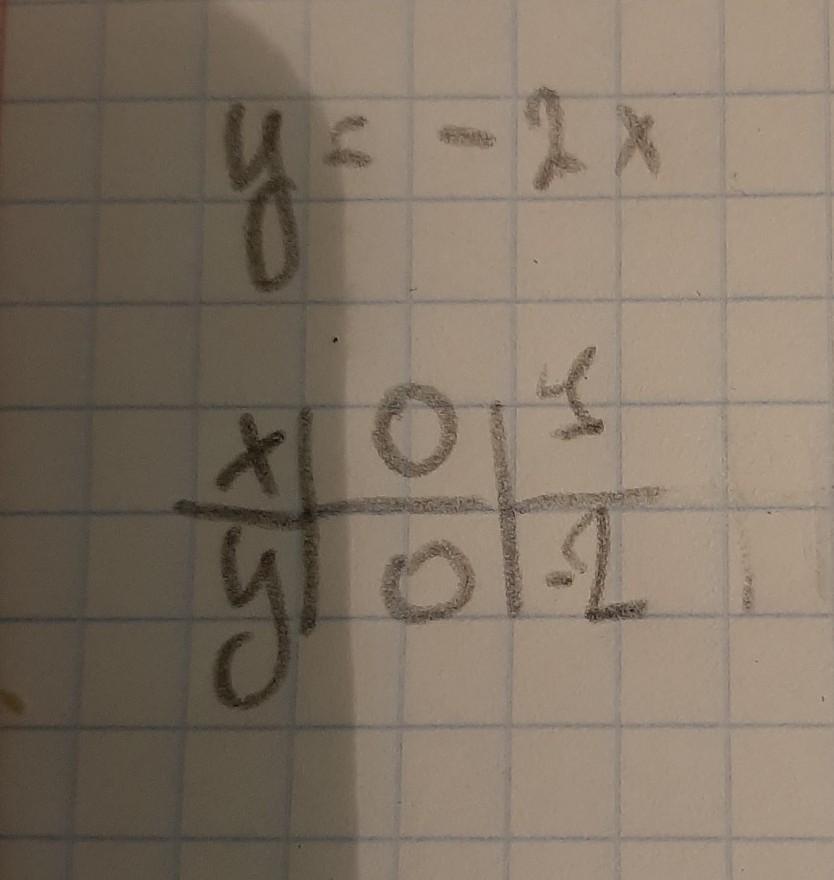 y = -2x
x | 0 | 1
y | 0 | -2